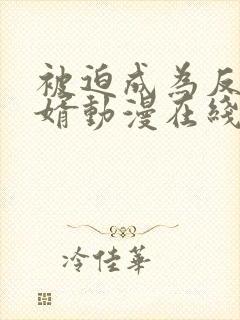 被迫成為反
婿動漫在綫
冷佳華